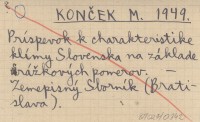 KONČEK M. 1949.
Príspevok k charakteristike
klímy Slovenska na základe
zrážkových pomerov. —
Zemepisný Sborník (Brati-
slava).